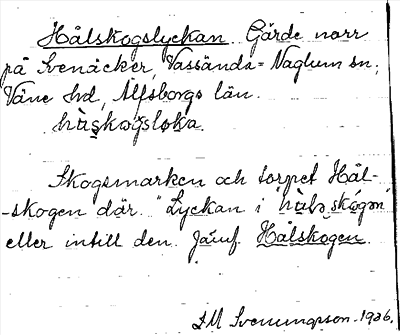 Hålskogslyckan. Gärde norr
på Svenåcker, Vassända-Naglum sn,
Väne hd, Älfsborgs län.
hàskog̀sloka.
Skogsmarken och torpet Hål-
-skogen där. "Lyckan i hàlskógən
eller intill den. Jämf. Hålskogen.
D M Svenungsson. 1926.